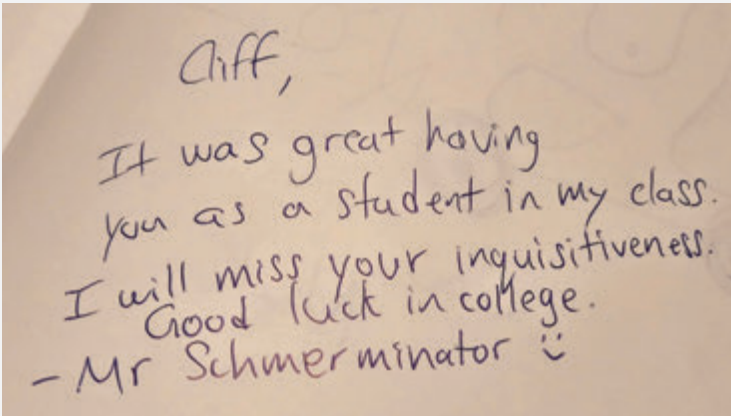 Cliff,
It was great having
you as a student in my class.
I will miss your inquisitiveness.
Good luck in college.
- Mr Schmerminator :)